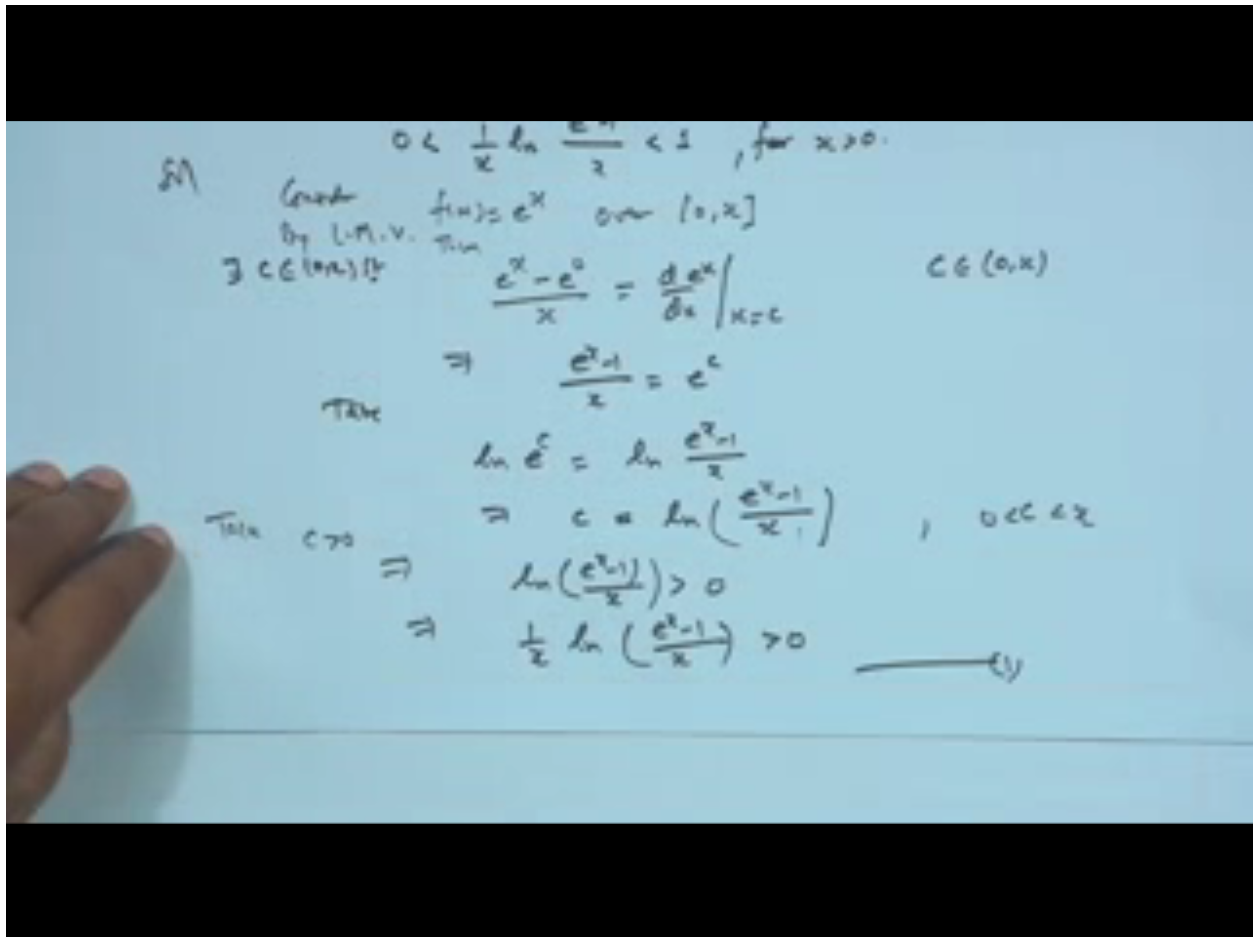 0 < 1/x ln (e^x-1)/x < 1 , for x>0.
Sol
Consider f(x) = e^x over [0,x]
By L.M.V. Thm
∃ c∈(0,x) st (e^x - e^0)/x = d e^x/dx |_{x=c} c∈(0,x)
⇒ (e^x-1)/x = e^c
Take
ln e^c = ln (e^x-1)/x
⇒ c = ln((e^x-1)/x) , 0<c<x
Take c>0
⇒ ln((e^x-1)/x) > 0
⇒ 1/x ln((e^x-1)/x) > 0 —(1)